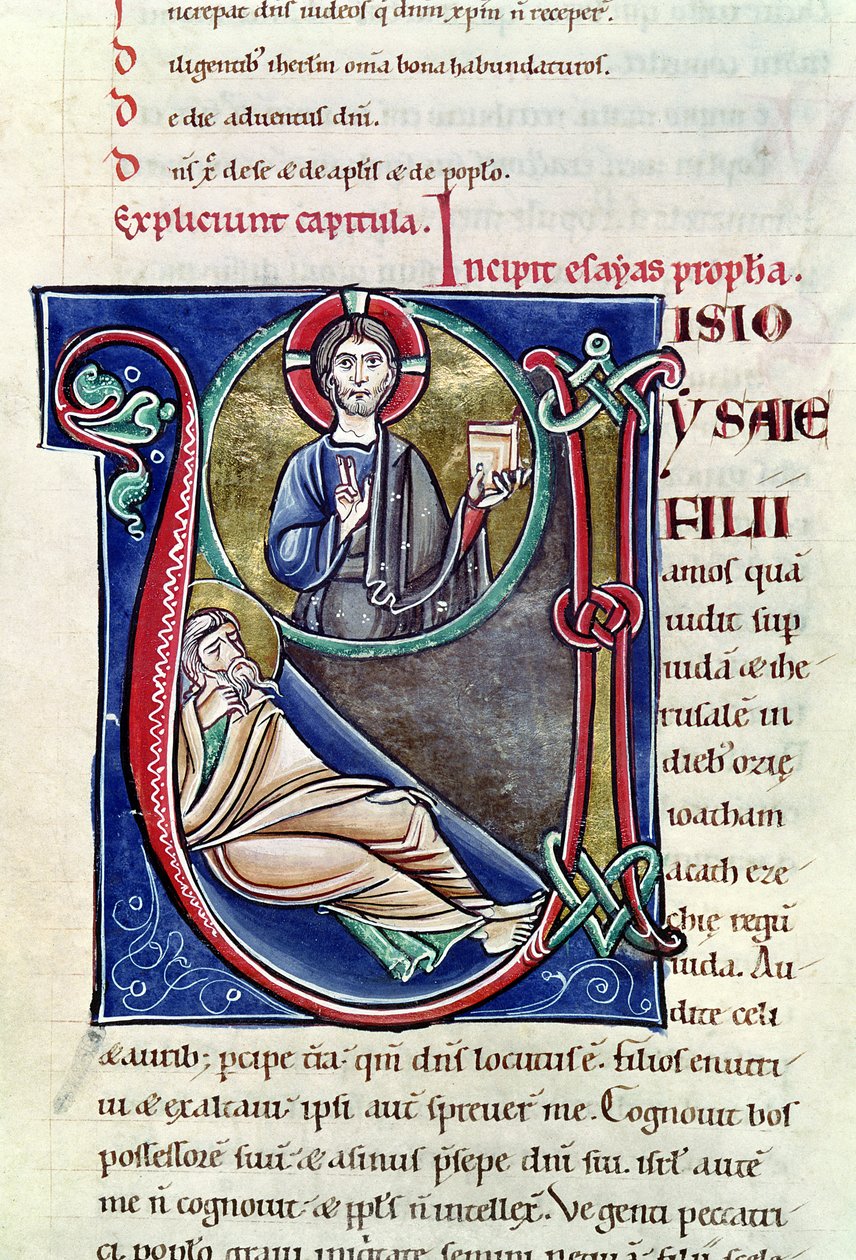 Increpat dn̄s iudeos q̄ dnm̄ xp̄m n̄ receper̄.
Diligentib᷒ iherl̄m om̄a bona habundaturos.
De die aduentus dn̄i.
Dn̄s xp̄c de se & de ap̄lis & de popl̄o.
Expliciunt capitula.
Incipit esaẏas proph̄a.
VISIO
ẏSAIE
FILII
amos quā
uidit sup
iudā & ihe
rusalē in
dieb᷒ ozię
ioatham
acath eze
chię regū
iuda. Au
dite celi
& aurib᷒; p̄cipe t̄ra. qm̄ dn̄s locutus ē. filios enutri
ui & exaltaui. ipsi aut̄ spreuer̄ me. Cognouit bos
possessorē suū. & asinus p̄sepe dn̄i sui. isrl̄ autē
me n̄ cognouit. & ppl̄s n̄ intellex̄. Ve genti peccatri
ci. popl̄o graui iniq̄tate. semini neq̄ā. filiis scele